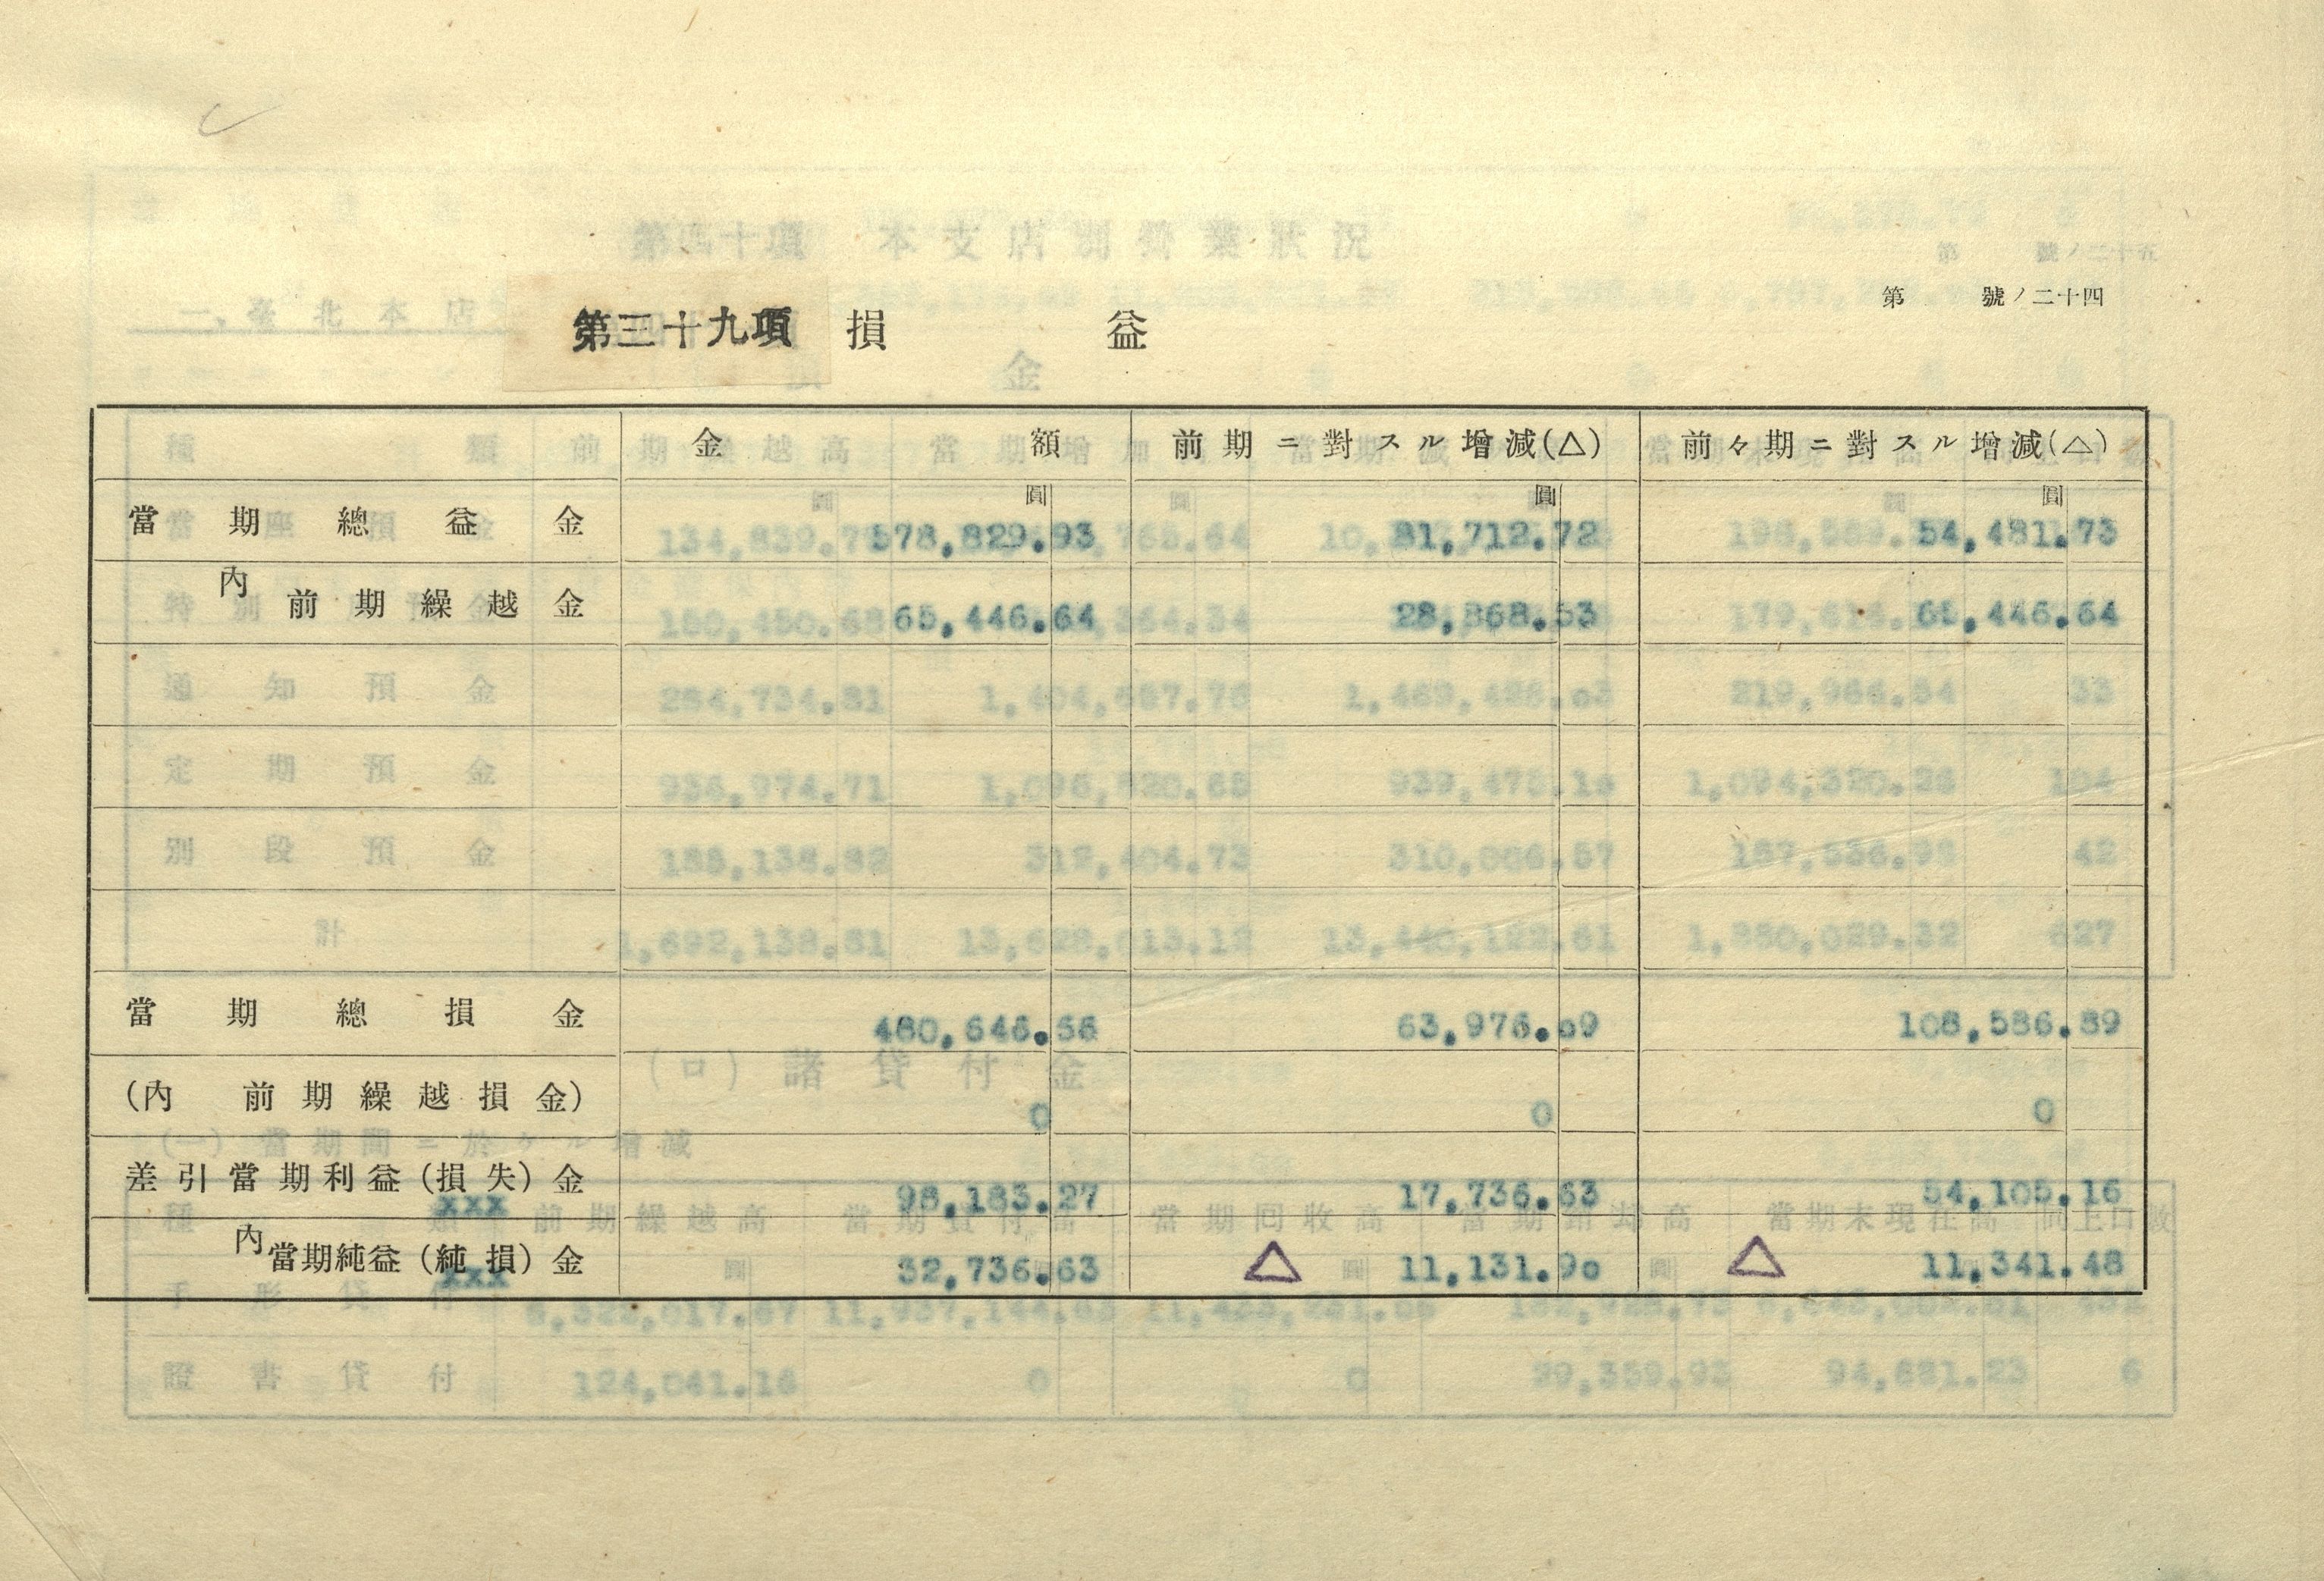 第　號ノ二十四
第三十九項 損益
金額 前期ニ對スル增減(△) 前々期ニ對スル增減(△)
圓 圓 圓
當期總益金 578,829.93 81,712.72 54,481.73
內前期繰越金 65,446.64 28,868.53 65,446.64
當期總損金 480,646.66 63,976.09 108,586.89
(內 前期繰越損金) 0 0 0
差引當期利益(損失)金 98,183.27 17,736.63 54,105.16
xxx
內當期純益(純損)金 32,736.63 △ 11,131.90 △ 11,341.48
xxx